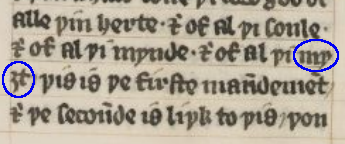 alle þin herte · ⁊ of al þi soule ·
⁊ of al þi mynde · ⁊ of al þi my
ȝt / þis is þe firste mañdemēt /
⁊ þe secoũde is lijk to þis / þou